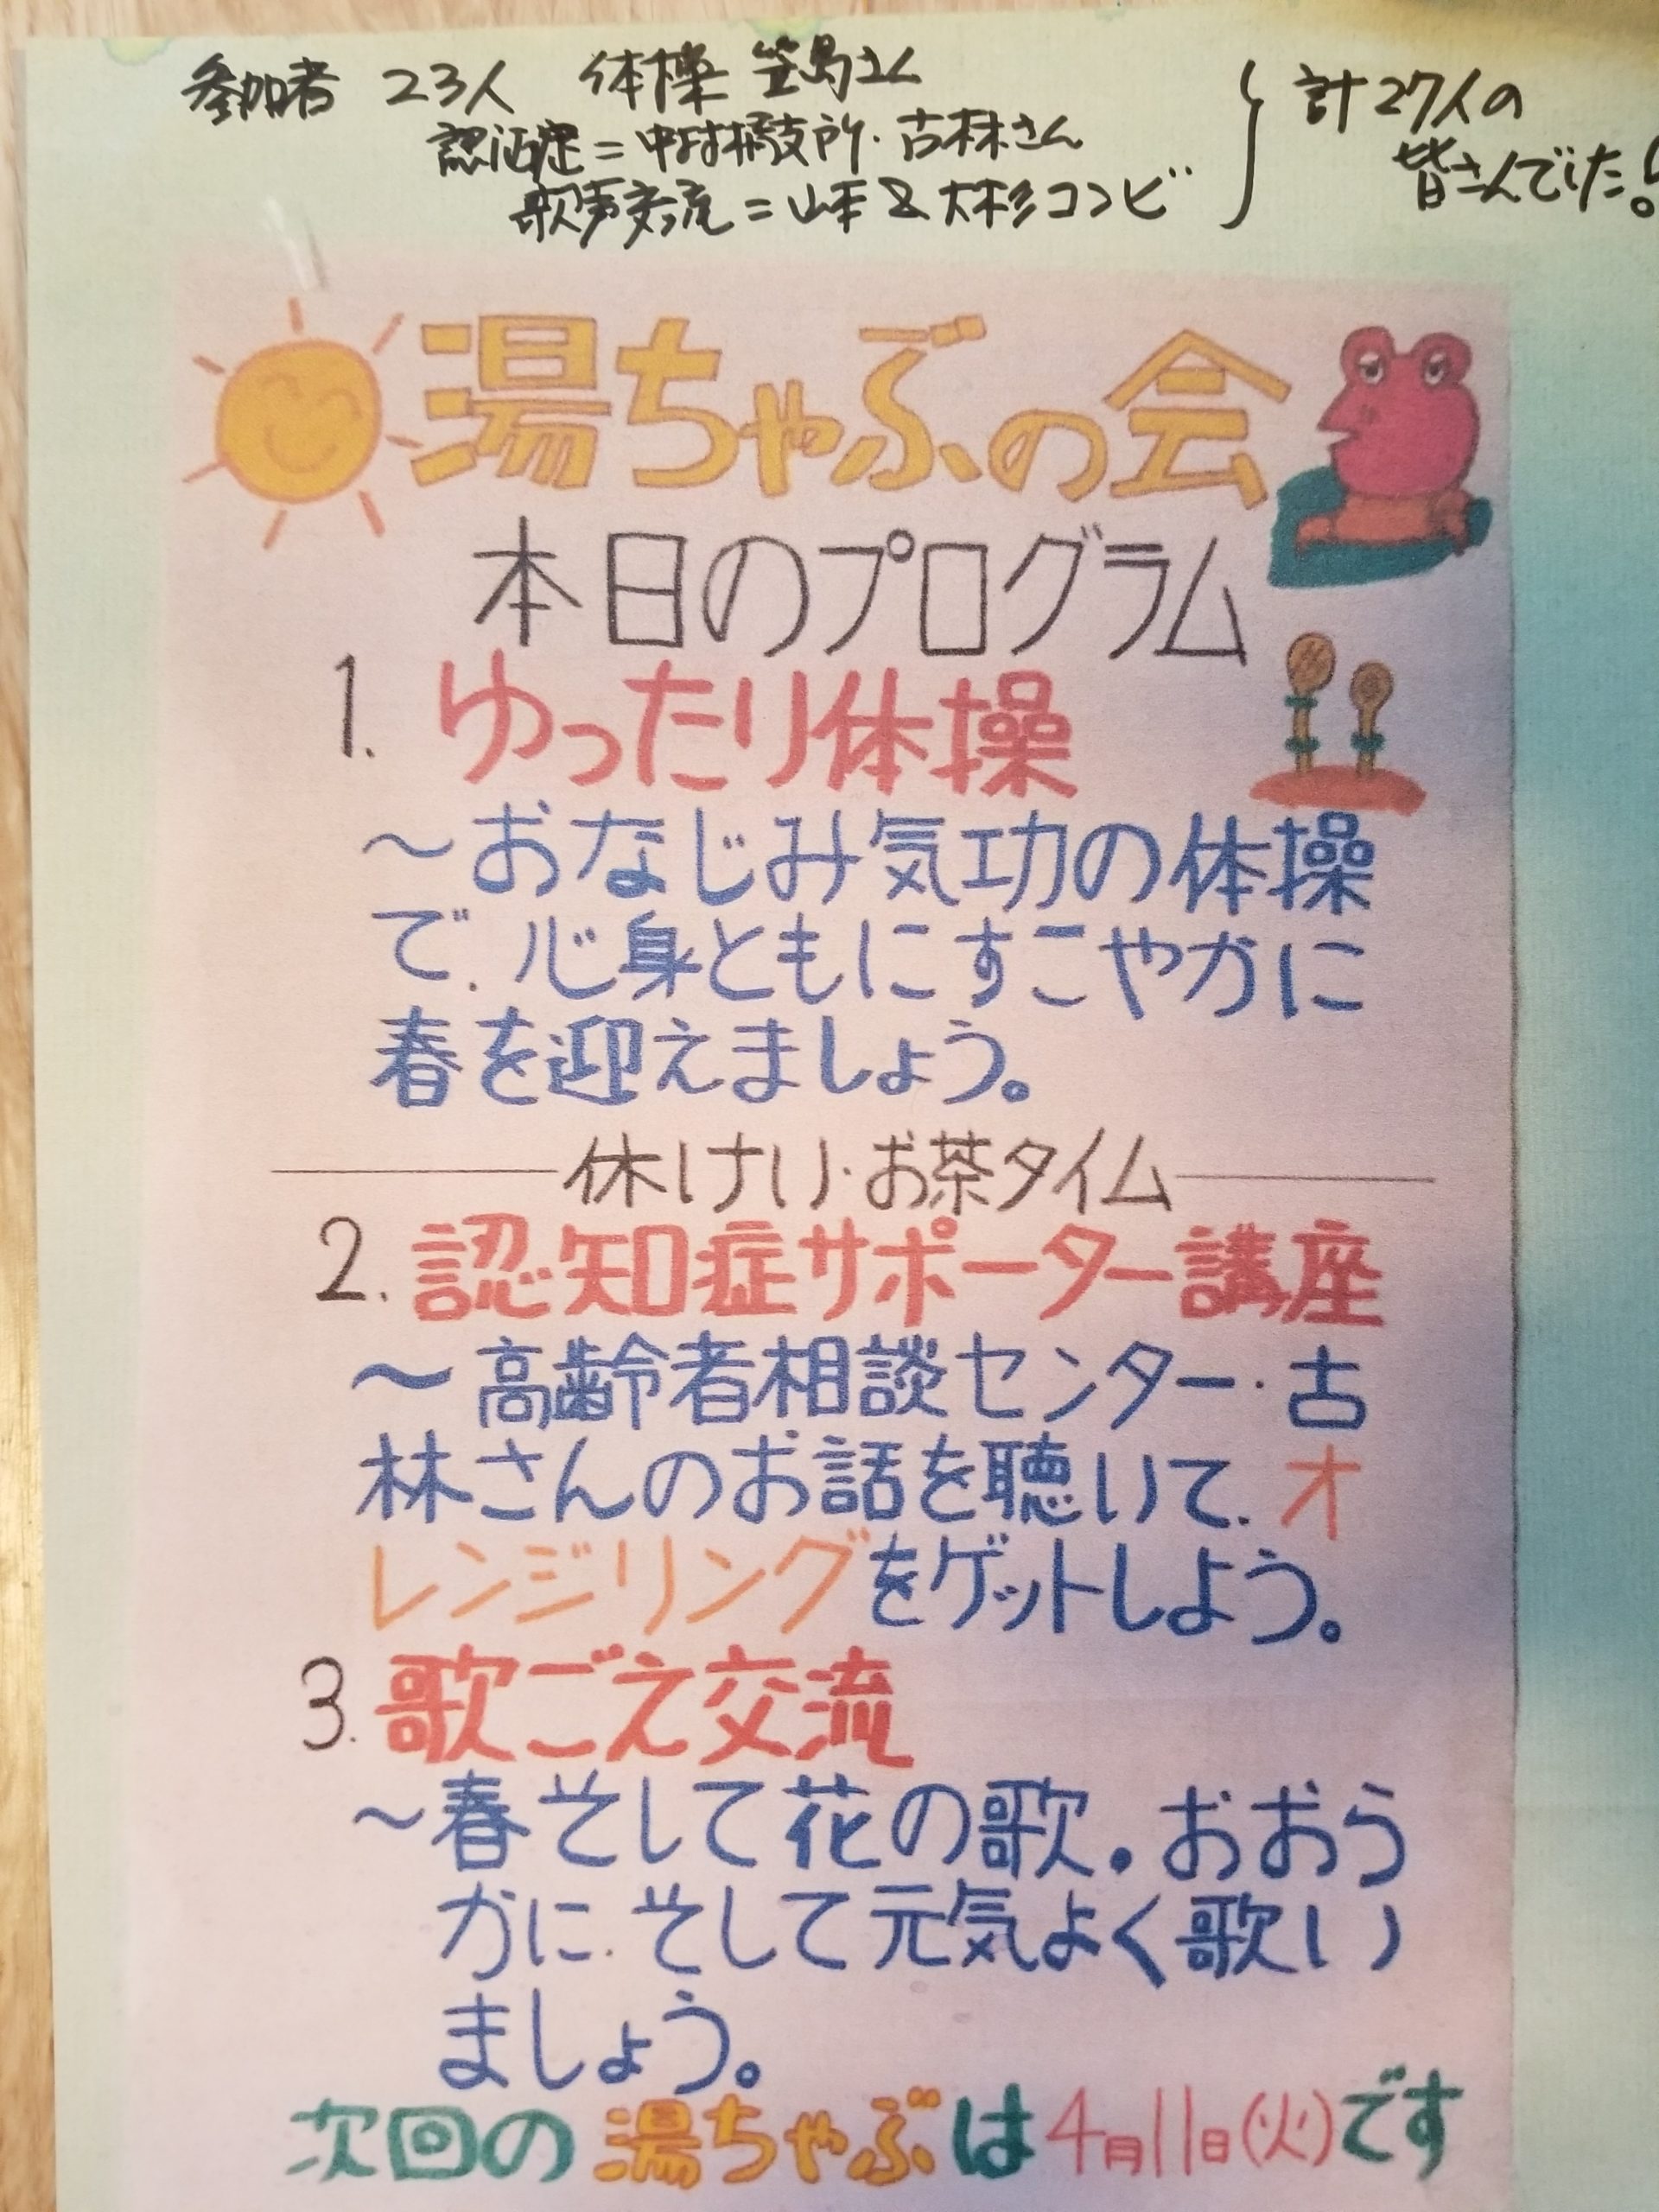 参加者 23人 体操 笠島さん
認知症=中村橋支所・古林さん
歌声交流=山本&大杉コンビ
計27人の
皆さんでした!
湯ちゃぶの会
本日のプログラム
1. ゆったり体操
～おなじみ気功の体操
で、心身ともにすこやかに
春を迎えましょう。
休けい・お茶タイム
2. 認知症サポーター講座
～高齢者相談センター・古
林さんのお話を聴いて、オ
レンジリングをゲットしよう。
3. 歌ごえ交流
～春そして花の歌。おおら
かに、そして元気よく歌い
ましょう。
次回の湯ちゃぶは4月11日(火)です